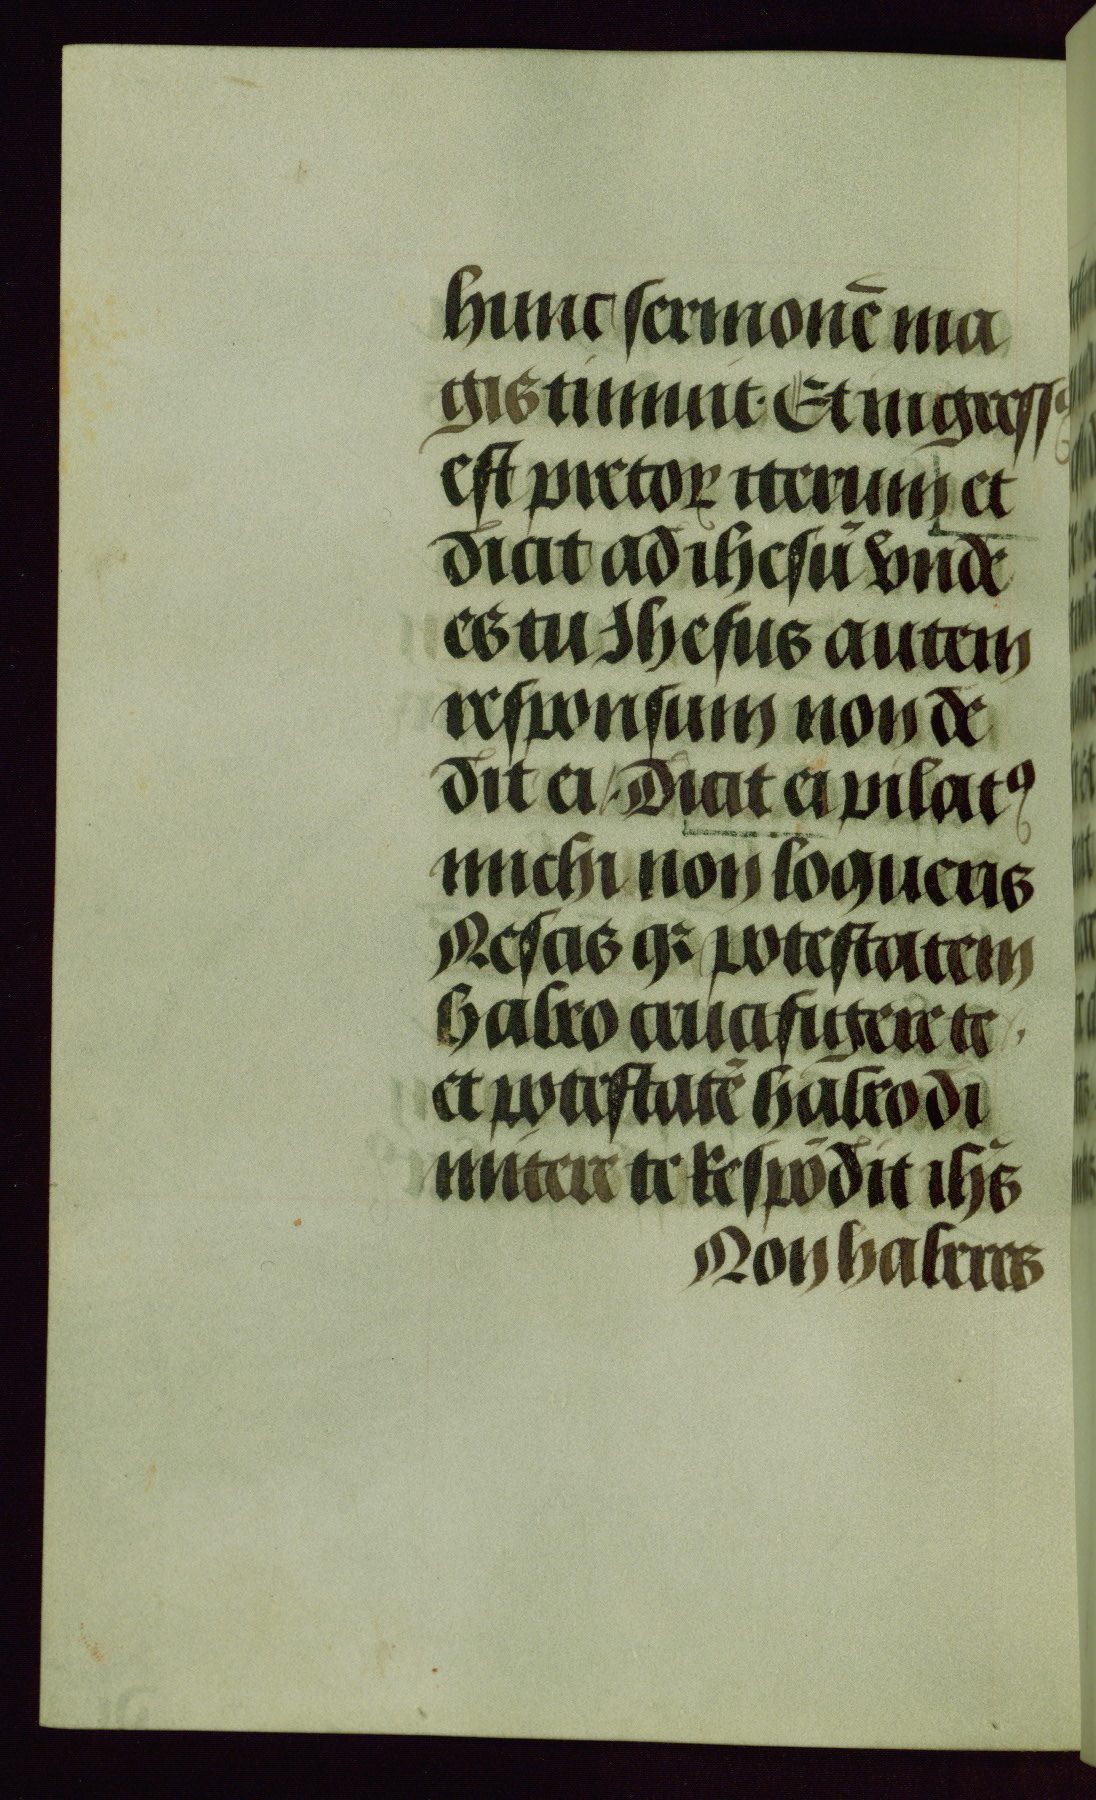 hunc sermonē ma
gis timuit. Et ingressꝰ
est pretoꝝ iterum et
dicit ad ihesū vnde
es tu Ihesus autem
responsum non de
dit ei / Dicit ei pilatꝰ
michi non loqueris
Nescis qꝛ potestatem
habeo crucifigere te
et potestatē habeo di
mitere te Respōdit ih̄s
Non haberes